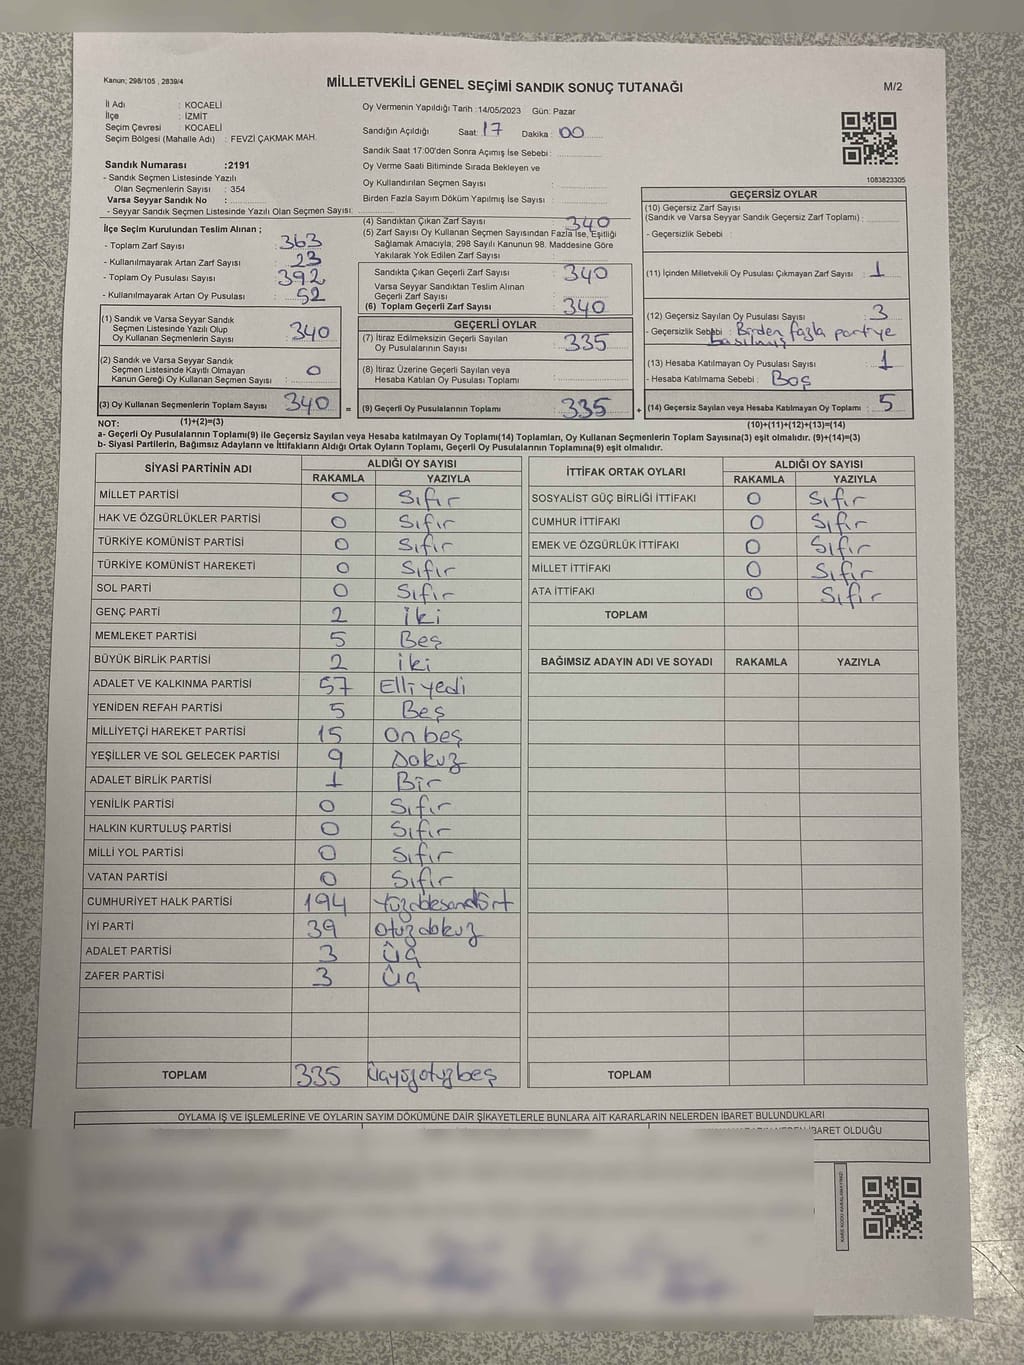 Kanun; 298/105 , 2839/4
MİLLETVEKİLİ GENEL SEÇİMİ SANDIK SONUÇ TUTANAĞI
M/2
İl Adı : KOCAELİ
İlçe : İZMİT
Seçim Çevresi : KOCAELİ
Seçim Bölgesi (Mahalle Adı) : FEVZİ ÇAKMAK MAH.
Sandık Numarası :2191
- Sandık Seçmen Listesinde Yazılı
Olan Seçmenlerin Sayısı : 354
Varsa Seyyar Sandık No :
- Seyyar Sandık Seçmen Listesinde Yazılı Olan Seçmen Sayısı:
Oy Vermenin Yapıldığı Tarih :14/05/2023 Gün: Pazar
Sandığın Açıldığı Saat: 17 Dakika : 00
Sandık Saat 17:00'den Sonra Açımış İse Sebebi :
Oy Verme Saati Bitiminde Sırada Bekleyen ve
Oy Kullandırılan Seçmen Sayısı :
Birden Fazla Sayım Döküm Yapılmış İse Sayısı :
1083823305
İlçe Seçim Kurulundan Teslim Alınan ;
- Toplam Zarf Sayısı : 363
- Kullanılmayarak Artan Zarf Sayısı : 23
- Toplam Oy Pusulası Sayısı : 392
- Kullanılmayarak Artan Oy Pusulası : 52
(1) Sandık ve Varsa Seyyar Sandık
Seçmen Listesinde Yazılı Olup
Oy Kullanan Seçmenlerin Sayısı : 340
(2) Sandık ve Varsa Seyyar Sandık
Seçmen Listesinde Kayıtlı Olmayan
Kanun Gereği Oy Kullanan Seçmen Sayısı : 0
(3) Oy Kullanan Seçmenlerin Toplam Sayısı : 340 =
(4) Sandıktan Çıkan Zarf Sayısı : 340
(5) Zarf Sayısı Oy Kullanan Seçmen Sayısından Fazla İse, Eşitliği
Sağlamak Amacıyla; 298 Sayılı Kanunun 98. Maddesine Göre
Yakılarak Yok Edilen Zarf Sayısı :
Sandıkta Çıkan Geçerli Zarf Sayısı : 340
Varsa Seyyar Sandıktan Teslim Alınan
Geçerli Zarf Sayısı :
(6) Toplam Geçerli Zarf Sayısı : 340
GEÇERLİ OYLAR
(7) İtiraz Edilmeksizin Geçerli Sayılan
Oy Pusulalarının Sayısı : 335
(8) İtiraz Üzerine Geçerli Sayılan veya
Hesaba Katılan Oy Pusulası Toplamı :
(9) Geçerli Oy Pusulalarının Toplamı : 335 +
GEÇERSİZ OYLAR
(10) Geçersiz Zarf Sayısı
(Sandık ve Varsa Seyyar Sandık Geçersiz Zarf Toplamı) :
- Geçersizlik Sebebi :
(11) İçinden Milletvekili Oy Pusulası Çıkmayan Zarf Sayısı : 1
(12) Geçersiz Sayılan Oy Pusulası Sayısı : 3
- Geçersizlik Sebebi : Birden fazla partiye
basılmış
(13) Hesaba Katılmayan Oy Pusulası Sayısı : 1
- Hesaba Katılmama Sebebi : Boş
(14) Geçersiz Sayılan veya Hesaba Katılmayan Oy Toplamı : 5
NOT: (1)+(2)=(3) (10)+(11)+(12)+(13)=(14)
a- Geçerli Oy Pusulalarının Toplamı(9) ile Geçersiz Sayılan veya Hesaba katılmayan Oy Toplamı(14) Toplamları, Oy Kullanan Seçmenlerin Toplam Sayısına(3) eşit olmalıdır. (9)+(14)=(3)
b- Siyasi Partilerin, Bağımsız Adayların ve İttifakların Aldığı Ortak Oyların Toplamı, Geçerli Oy Pusulalarının Toplamına(9) eşit olmalıdır.
SİYASİ PARTİNİN ADI ALDIĞI OY SAYISI
RAKAMLA YAZIYLA
MİLLET PARTİSİ 0 Sıfır
HAK VE ÖZGÜRLÜKLER PARTİSİ 0 Sıfır
TÜRKİYE KOMÜNİST PARTİSİ 0 Sıfır
TÜRKİYE KOMÜNİST HAREKETİ 0 Sıfır
SOL PARTİ 0 Sıfır
GENÇ PARTİ 2 İki
MEMLEKET PARTİSİ 5 Beş
BÜYÜK BİRLİK PARTİSİ 2 İki
ADALET VE KALKINMA PARTİSİ 57 Elli yedi
YENİDEN REFAH PARTİSİ 5 Beş
MİLLİYETÇİ HAREKET PARTİSİ 15 On beş
YEŞİLLER VE SOL GELECEK PARTİSİ 9 Dokuz
ADALET BİRLİK PARTİSİ 1 Bir
YENİLİK PARTİSİ 0 Sıfır
HALKIN KURTULUŞ PARTİSİ 0 Sıfır
MİLLİ YOL PARTİSİ 0 Sıfır
VATAN PARTİSİ 0 Sıfır
CUMHURİYET HALK PARTİSİ 194 Yüzdoksandört
İYİ PARTİ 39 Otuzdokuz
ADALET PARTİSİ 3 Üç
ZAFER PARTİSİ 3 Üç
TOPLAM 335 Üçyüzotuzbeş
İTTİFAK ORTAK OYLARI ALDIĞI OY SAYISI
RAKAMLA YAZIYLA
SOSYALİST GÜÇ BİRLİĞİ İTTİFAKI 0 Sıfır
CUMHUR İTTİFAKI 0 Sıfır
EMEK VE ÖZGÜRLÜK İTTİFAKI 0 Sıfır
MİLLET İTTİFAKI 0 Sıfır
ATA İTTİFAKI 0 Sıfır
TOPLAM
BAĞIMSIZ ADAYIN ADI VE SOYADI RAKAMLA YAZIYLA
TOPLAM
OYLAMA İŞ VE İŞLEMLERİNE VE OYLARIN SAYIM DÖKÜMÜNE DAİR ŞİKAYETLERLE BUNLARA AİT KARARLARIN NELERDEN İBARET BULUNDUKLARI
İBARET OLDUĞU